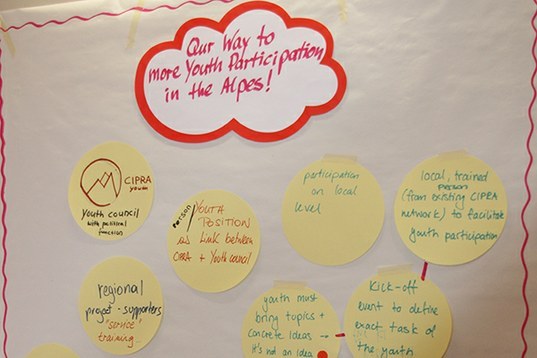 Our Way to
more Youth Participation
in the Alpes!
CIPRA
youth
Youth council
with political
function
person/
YOUTH
POSITION
as Link between
CIPRA + Youth council
participation
on local
level
local, trained
person
(from existing CIPRA
network) to facilitate
youth participation
regional
project-supporters
"service"
training...
youth must
bring topics +
concrete ideas
it's not an idea
Kick-off
event to define
exact task of
the youth